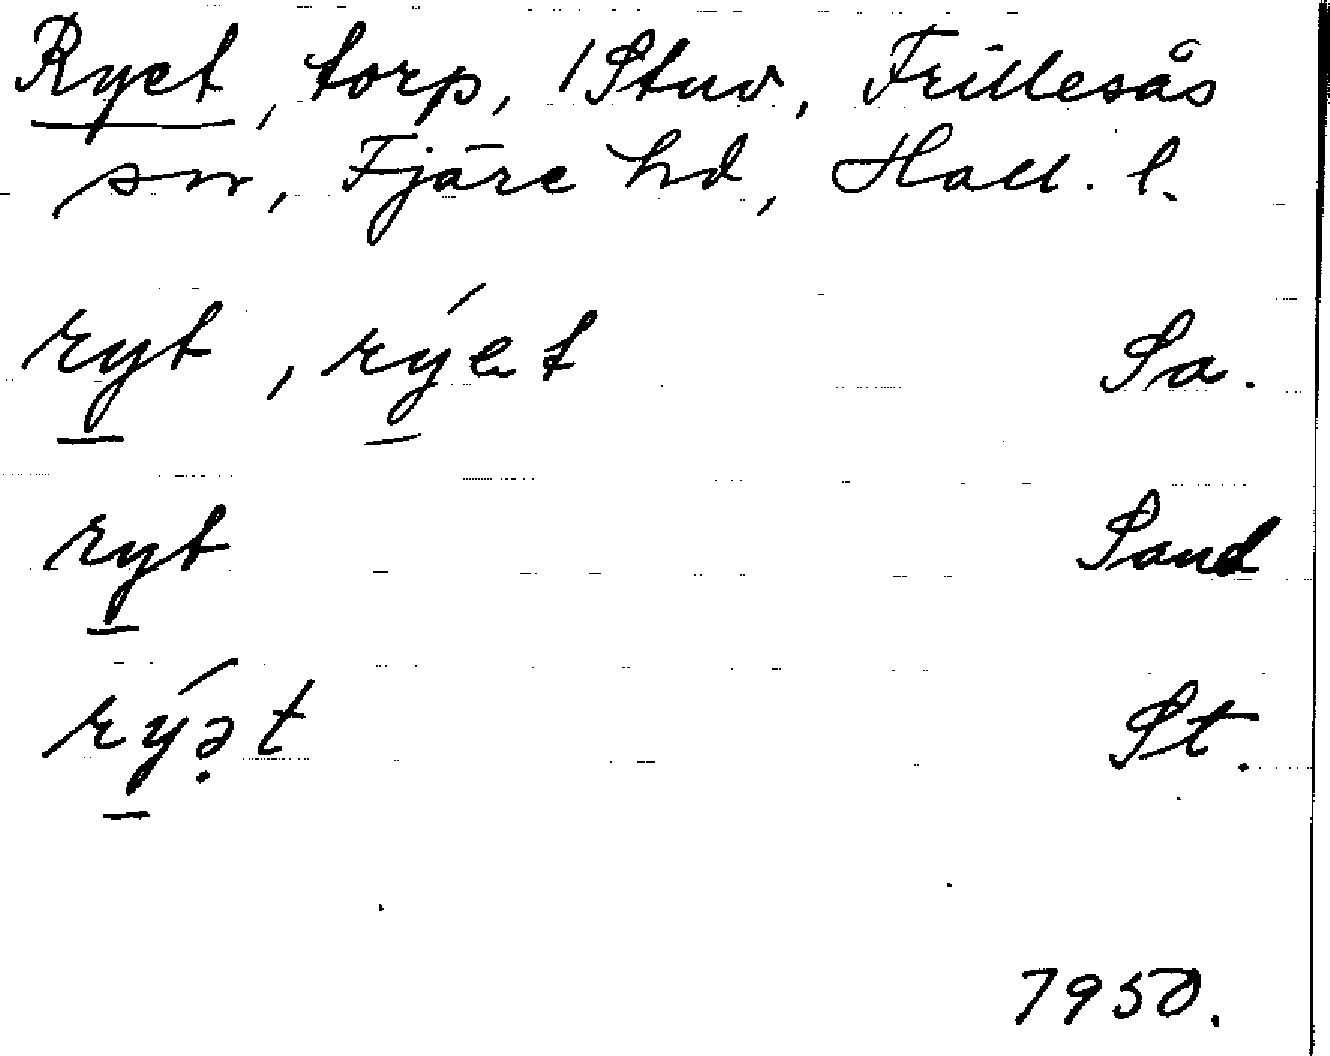 Ryet, torp, /Stuv, Frillesås
sn, Fjäre hd, Hall. l.
ryt, rýet Sa.
ryt Sand
rýə̣t St.
1950.